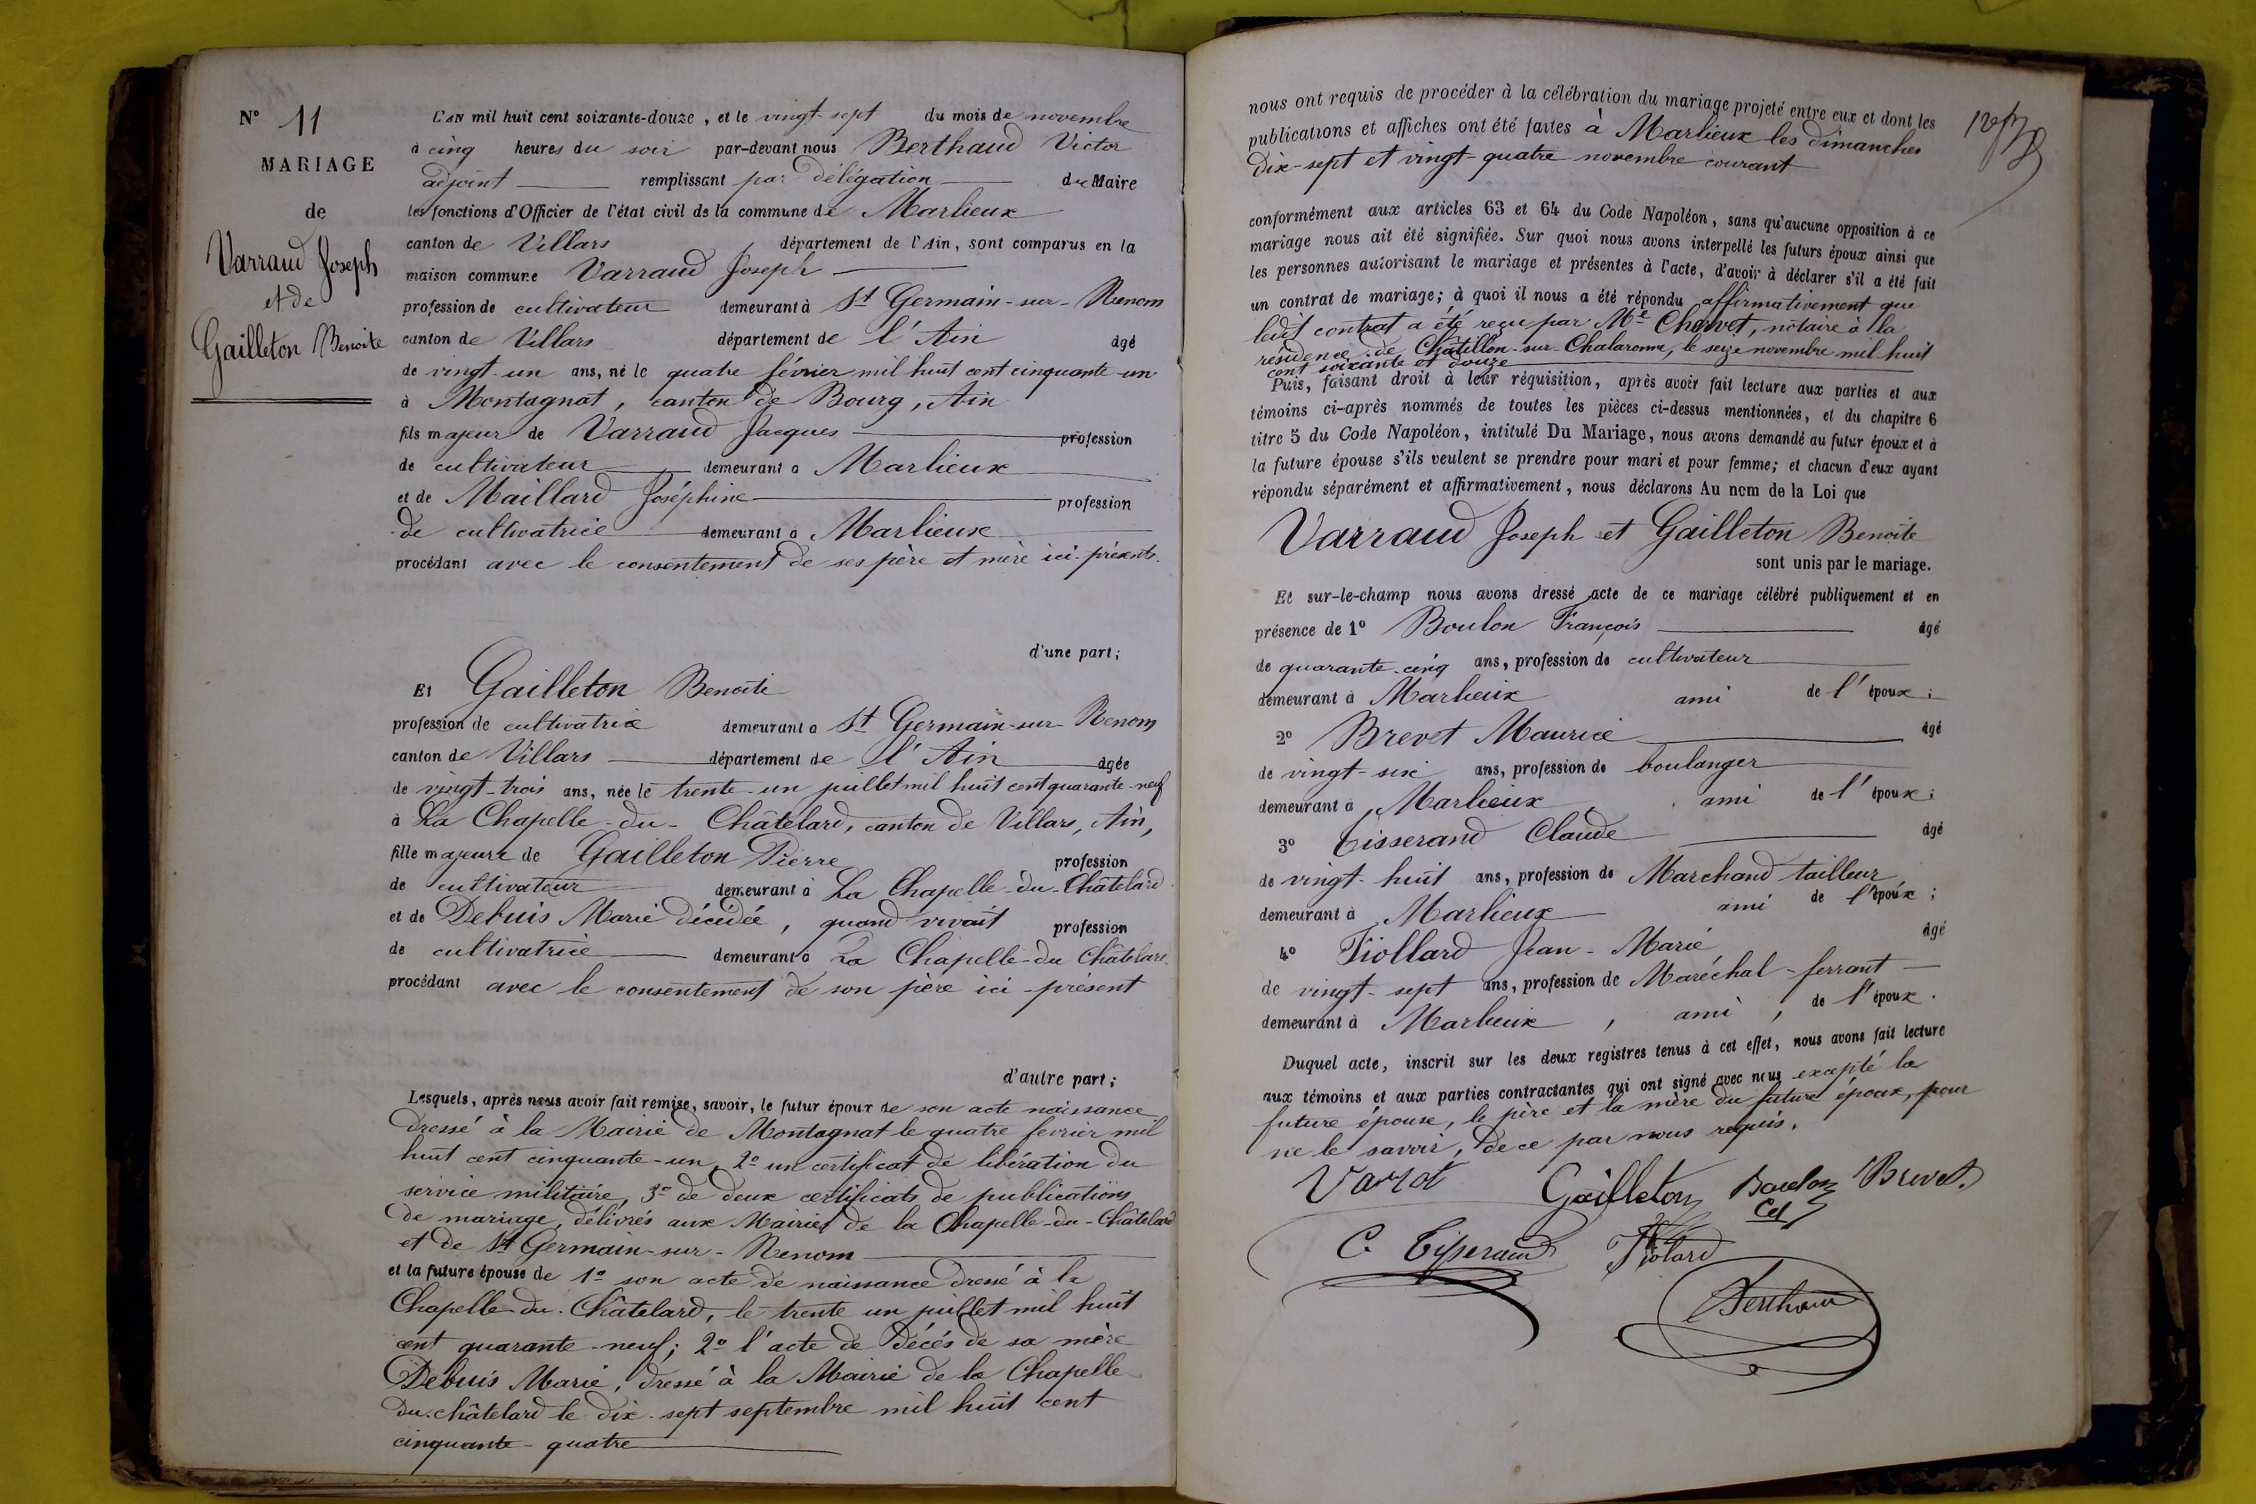 N° 11
MARIAGE
de
Varraud Joseph
et de
Gailleton Benoite
L'AN mil huit cent soixante-douze, et le vingt-sept du mois de novembre
à cinq heures du soir par-devant nous Berthaud Victor
adjoint remplissant par délégation du Maire
les fonctions d'Officier de l'état civil de la commune de Marlieux
canton de Villars département de l'Ain, sont comparus en la
maison commune Varraud Joseph
profession de cultivateur demeurant à St Germain-sur-Renom
canton de Villars département de l'Ain âgé
de vingt-un ans, né le quatre février mil huit cent cinquante-un
à Montagnat, canton de Bourg, Ain
fils majeur de Varraud Jacques profession
de cultivateur demeurant à Marlieux
et de Maillard Joséphine profession
de cultivatrice demeurant à Marlieux
procédant avec le consentement de ses père et mère ici-présents.
d'une part;
Et Gailleton Benoite
profession de cultivatrice demeurant à St Germain-sur-Renom
canton de Villars département de l'Ain âgée
de vingt-trois ans, née le trente-un juillet mil huit cent quarante-neuf
à La Chapelle-du-Châtelard, canton de Villars, Ain,
fille majeure de Gailleton Pierre profession
de cultivateur demeurant à La Chapelle-du-Châtelard
et de Debuis Marie décédée, quand vivait profession
de cultivatrice demeurant à La Chapelle-du Châtelard.
procédant avec le consentement de son père ici-présent
d'autre part;
Lesquels, après nous avoir fait remise, savoir, le futur époux de son acte naissance
dressé à la Mairie de Montagnat le quatre février mil
huit cent cinquante-un, 2° un certificat de libération du
service militaire, 3° de deux certificats de publications
de mariage, délivrés aux Mairies de la Chapelle-du-Châtelard
et de St Germain-sur-Renom
et la future épouse de 1° son acte de naissance dressé à la
Chapelle-du-Châtelard, le trente un juillet mil huit
cent quarante-neuf; 2° l'acte de décés de sa mère
Debuis Marie, dressé à la Mairie de la Chapelle
du-châtelard le dix-sept septembre mil huit cent
cinquante-quatre
nous ont requis de procéder à la célébration du mariage projeté entre eux et dont les
publications et affiches ont été faites à Marlieux les dimanches
dix-sept et vingt-quatre novembre courant
conformément aux articles 63 et 64 du Code Napoléon, sans qu'aucune opposition à ce
mariage nous ait été signifiée. Sur quoi nous avons interpellé les futurs époux ainsi que
les personnes autorisant le mariage et présentes à l'acte, d'avoir à déclarer s'il a été fait
un contrat de mariage; à quoi il nous a été répondu affirmativement que
ledit contrat a été reçu par Me Charvet, notaire à la
résidence de Châtillon-sur-Chalaronne, le seize novembre mil-huit
cent soixante et douze
Puis, faisant droit à leur réquisition, après avoir fait lecture aux parties et aux
témoins ci-après nommés de toutes les pièces ci-dessus mentionnées, et du chapitre 6
titre 5 du Code Napoléon, intitulé Du Mariage, nous avons demandé au futur époux et à
la future épouse s'ils veulent se prendre pour mari et pour femme; et chacun d'eux ayant
répondu séparément et affirmativement, nous déclarons Au nom de la Loi que
Varraud Joseph et Gailleton Benoite
sont unis par le mariage.
Et sur-le-champ nous avons dressé acte de ce mariage célébré publiquement et en
présence de 1° Boulon François âgé
de quarante-cinq ans, profession de cultivateur
demeurant à Marlieux ami de l'époux;
2° Brevet Maurice âgé
de vingt-six ans, profession de boulanger
demeurant à Marlieux, ami de l'époux;
3° Tisserand Claude âgé
de vingt-huit ans, profession de Marchand tailleur
demeurant à Marlieux ami de l'époux;
4° Fiollard Jean-Marie âgé
de vingt-sept ans, profession de Maréchal-ferrant
demeurant à Marlieux, ami, de l'époux.
Duquel acte, inscrit sur les deux registres tenus à cet effet, nous avons fait lecture
aux témoins et aux parties contractantes qui ont signé avec nous excepté la
future épouse, le père et la mère du futur époux, pour
ne le savoir, de ce par nous requis.
Varrot Gailleton Boulon Brevet.
C. Tisserand Fiolard
Berthaud